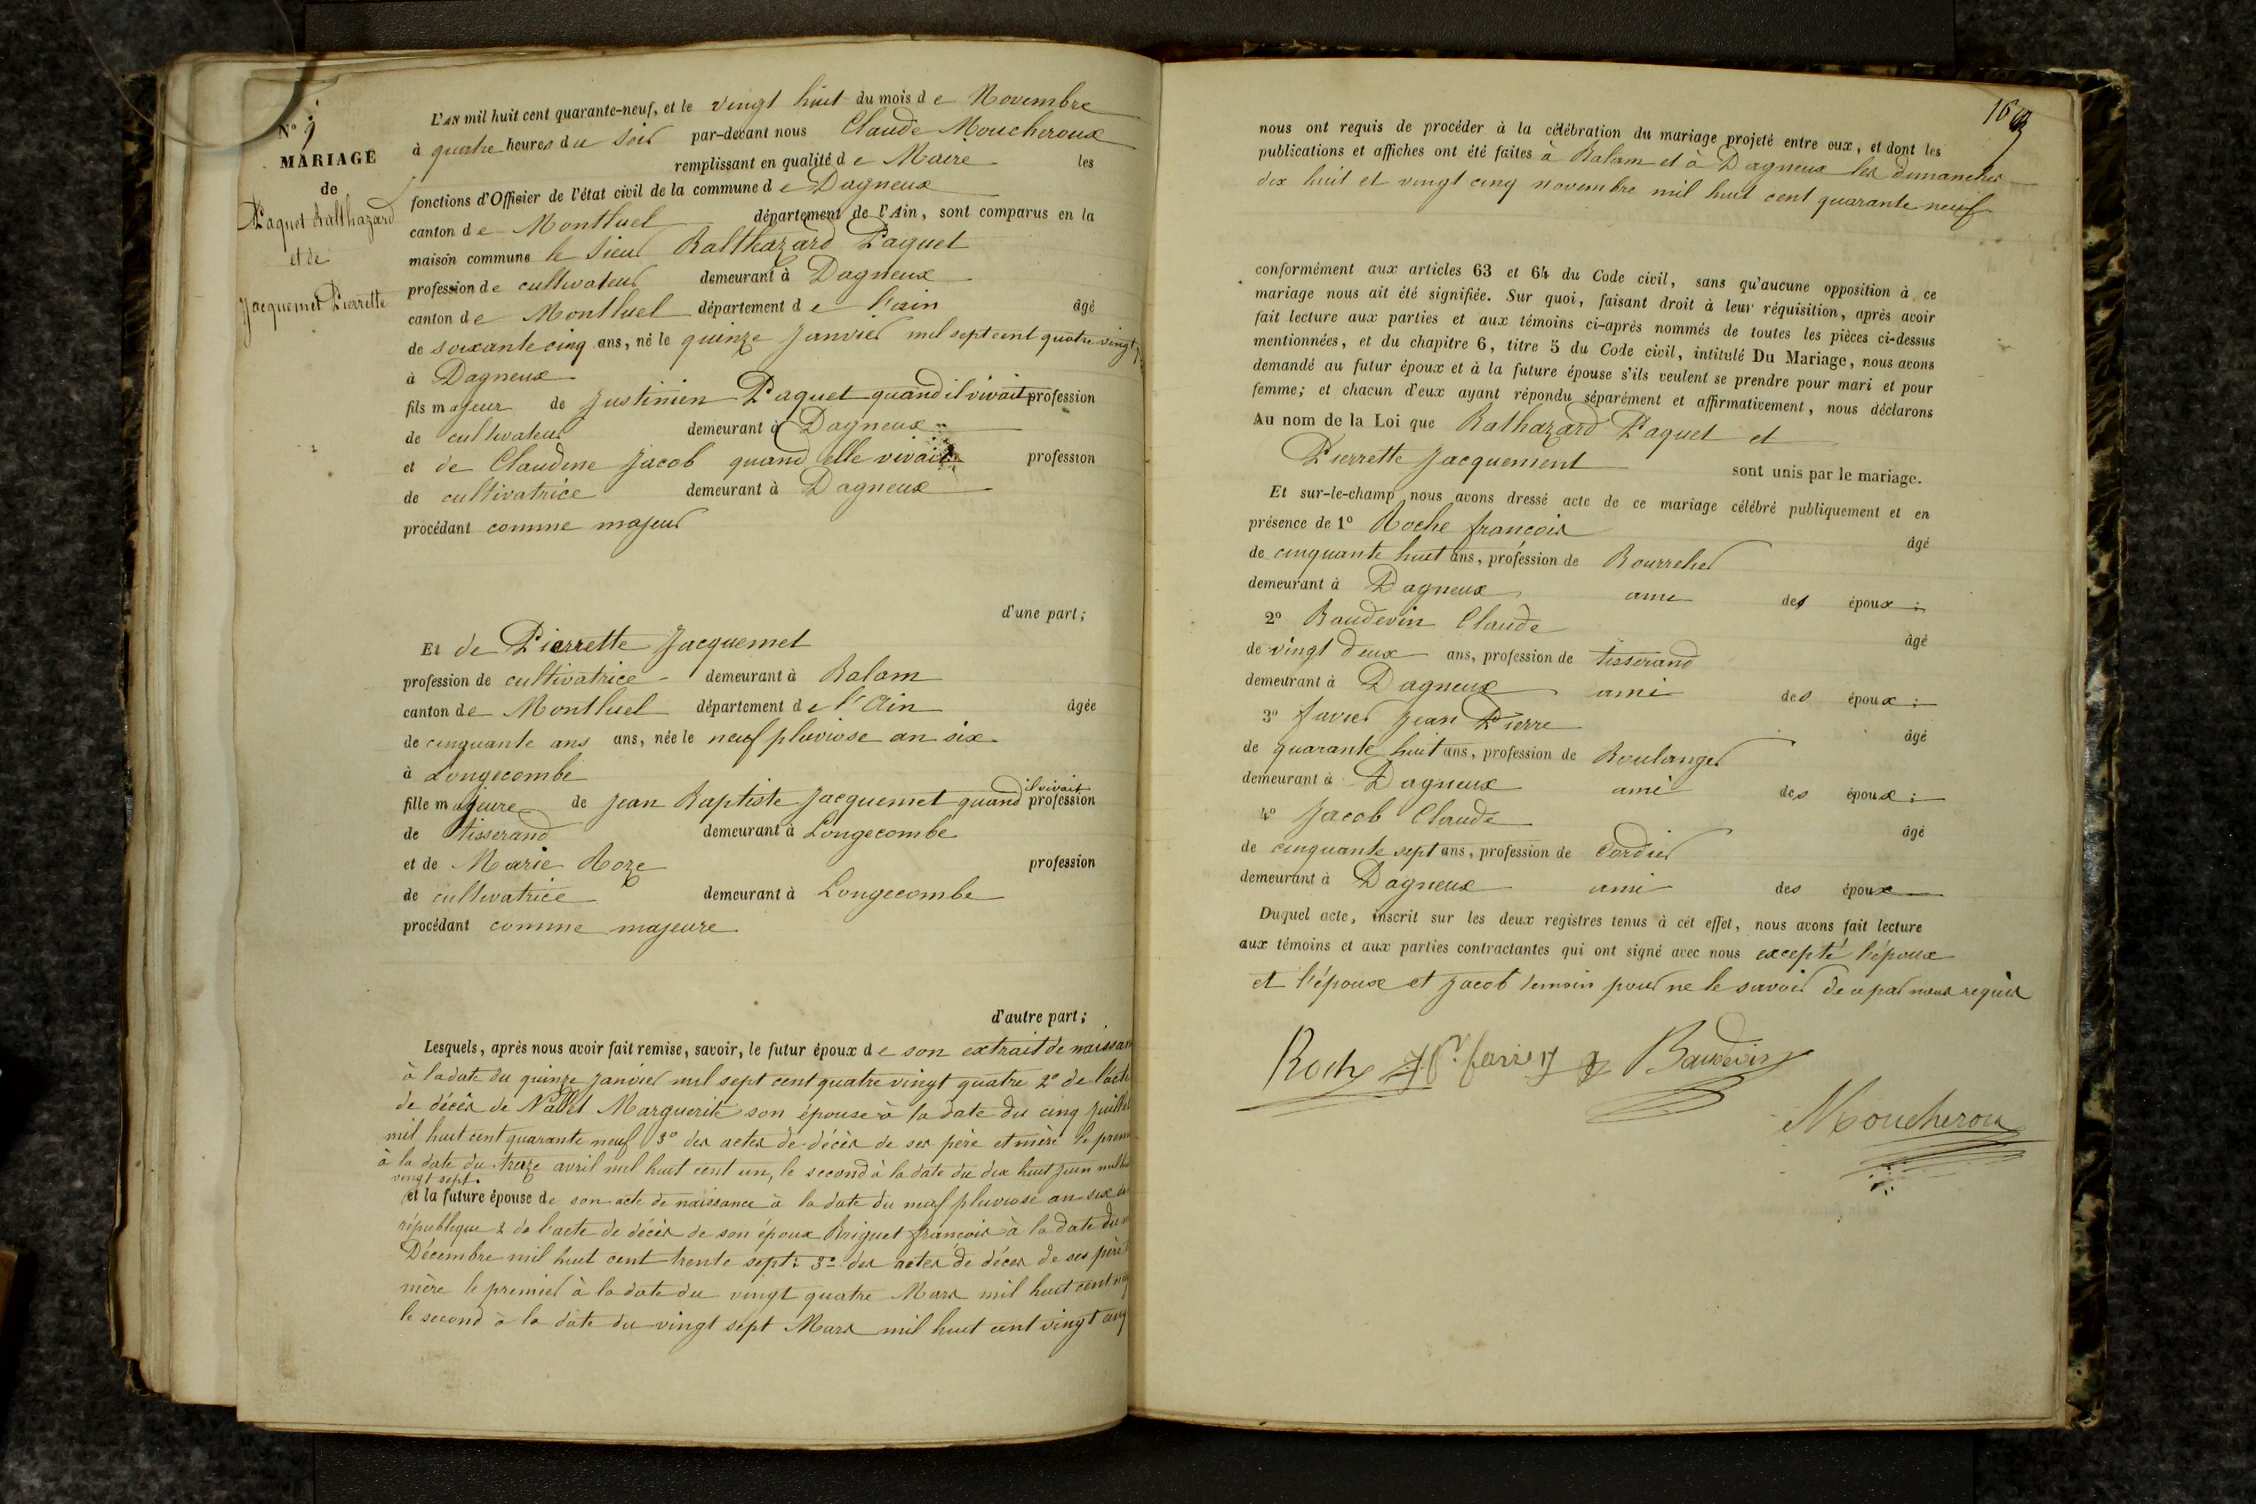 N° 9
MARIAGE
de
Paquet Balthazard
et de
Jacquemet Pierrette
L'AN mil huit cent quarante-neuf, et le vingt huit du mois de Novembre
à quatre heures du soir par-devant nous Claude Moucheroux
remplissant en qualité de Maire les
fonctions d'Officier de l'état civil de la commune de Dagneux
canton de Montluel département de l'Ain, sont comparus en la
maison commune le sieur Balthazard Paquet
profession de cultivateur demeurant à Dagneux
canton de Montluel département de l'ain âgé
de soixante cinq ans, né le quinze janvier mil sept cent quatre vingt
à Dagneux
fils majeur de Justinien Paquet quand il vivait profession
de cultivateur demeurant à Dagneux
et de Claudine Jacob quand elle vivait profession
de cultivatrice demeurant à Dagneux
procédant comme majeur
d'une part;
Et de Pierrette Jacquemet
profession de cultivatrice demeurant à Balam
canton de Montluel département de l'Ain âgée
de cinquante ans ans, née le neuf pluviose an six
à Longecombe
fille majeure de Jean Baptiste Jacquemet quand il vivait profession
de tisserand demeurant à Longecombe
et de Marie Roze profession
de cultivatrice demeurant à Longecombe
procédant comme majeure
d'autre part;
Lesquels, après nous avoir fait remise, savoir, le futur époux de son extrait de naissan
à la date du quinze janvier mil sept cent quatre vingt quatre 2° de l'acte
de décès de Nallet Marguerite son épouse à la date du cinq juillet
mil huit cent quarante neuf 3° des actes de décès de ses père et mère le prem
à la date du treize avril mil huit cent un, le second à la date du dix huit juin mil hui
vingt sept.
et la future épouse de son acte de naissance à la date du neuf pluviose an six de
républeque 2 de l'acte de décès de son époux Briguet francois à la date du
Décembre mil huit cent trente sept: 3° des actes de décès de ses père
mère le premier à la date du vingt quatre Mars mil huit cent
le second à la date du vingt sept Mars mil huit cent vingt cinq
16
nous ont requis de procéder à la célébration du mariage projeté entre eux, et dont les
publications et affiches ont été faites à Balam et à Dagneux les dimanches
dix huit et vingt cinq novembre mil huit cent quarante neuf
conformément aux articles 63 et 64 du Code civil, sans qu'aucune opposition à ce
mariage nous ait été signifiée. Sur quoi, faisant droit à leur réquisition, après avoir
fait lecture aux parties et aux témoins ci-après nommés de toutes les pièces ci-dessus
mentionnées, et du chapitre 6, titre 5 du Code civil, intitulé Du Mariage, nous avons
demandé au futur époux et à la future épouse s'ils veulent se prendre pour mari et pour
femme; et chacun d'eux ayant répondu séparément et affirmativement, nous déclarons
Au nom de la Loi que Balthazard Paquet et
Pierrette Jacquement sont unis par le mariage.
Et sur-le-champ nous avons dressé acte de ce mariage célébré publiquement et en
présence de 1° Roche francois âgé
de cinquante huit ans, profession de Bourrelier
demeurant à Dagneux ami des époux;
2° Baudevin Claude âgé
de vingt deux ans, profession de tisserand
demeurant à Dagneux ami des époux;
3° favier Jean Pierre âgé
de quarante huit ans, profession de Boulanger
demeurant à Dagneux ami des époux;
4° Jacob Claude âgé
de cinquante sept ans, profession de Cordier
demeurant à Dagneux ami des époux
Duquel acte, inscrit sur les deux registres tenus à cet effet, nous avons fait lecture
aux témoins et aux parties contractantes qui ont signé avec nous excepté l'époux
et l'épouse et Jacob temoin pour ne le savoir de ce par nous requis
Roch favier Baudevin
Moucheroux